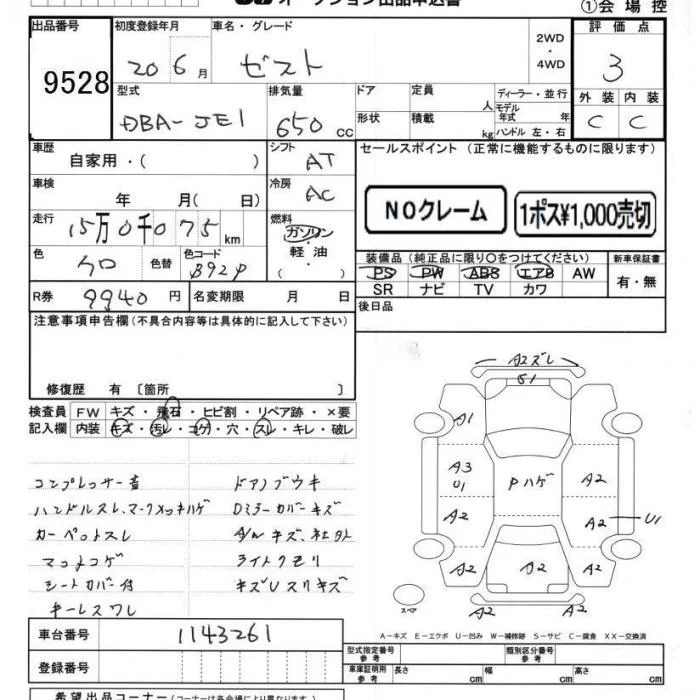 オークション出品申込書
①会場控
出品番号
9528
初度登録年月
20 6月
車名・グレード
ゼスト
2WD
・
4WD
評価点
3
型式
DBA-JE1
排気量
650 CC
ドア
形状
定員 人
積載 kg
ディーラー・並行
モデル年式 年
ハンドル 左・右
外装 内装
C C
車歴
自家用・( )
シフト
AT
セールスポイント (正常に機能するものに限ります)
車検
年 月( 日)
冷房
AC
NOクレーム
1ポス¥1,000売切
走行
15万0千075km
燃料
ガソリン
・
軽油
・
( )
色
クロ
色替
色コード
B92P
装備品 (純正品に限り○をつけてください)
PS PW ABS エアB AW
SR ナビ TV カワ
新車保証書
有・無
R券 9940 円
名変期限 月 日
後日品
注意事項申告欄(不具合内容等は具体的に記入して下さい)
修復歴 有 〔箇所 〕
検査員記入欄
FW キズ・飛石・ヒビ割・リペア跡・×要
内装 キズ・汚レ・コゲ・穴・スレ・キレ・破レ
コンプレッサー音
ハンドルスレ、マークメッキハゲ
カーペットスレ
マットコゲ
シートカバー付
キーレスワレ
ドアノブウキ
Dミラーカバーキズ
A/Wキズ、社外
ライトクモリ
キズUスリキズ
A2ズレ
S1
A1
A3
U1
PハゲA2
A2
A2
U1
A2
A2
A2
A2
A2
スペア
A－キズ E－エクボ U－凹み W－補修跡 S－サビ C－腐食 XX－交換済
車台番号
1143261
登録番号
型式指定番号
参考
類別区分番号
参考
車庫証明用
参考
長さ cm
幅 cm
高さ cm
希望出品コーナー(コーナーは各会場により異なります)